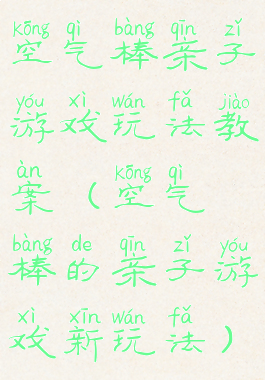 kōng qì bàng qīn zǐ
空气棒亲子
yóu xì wán fǎ jiào
游戏玩法教
àn kōng qì
案（空气
bàng de qīn zǐ yóu
棒的亲子游
xì xīn wán fǎ
戏新玩法）